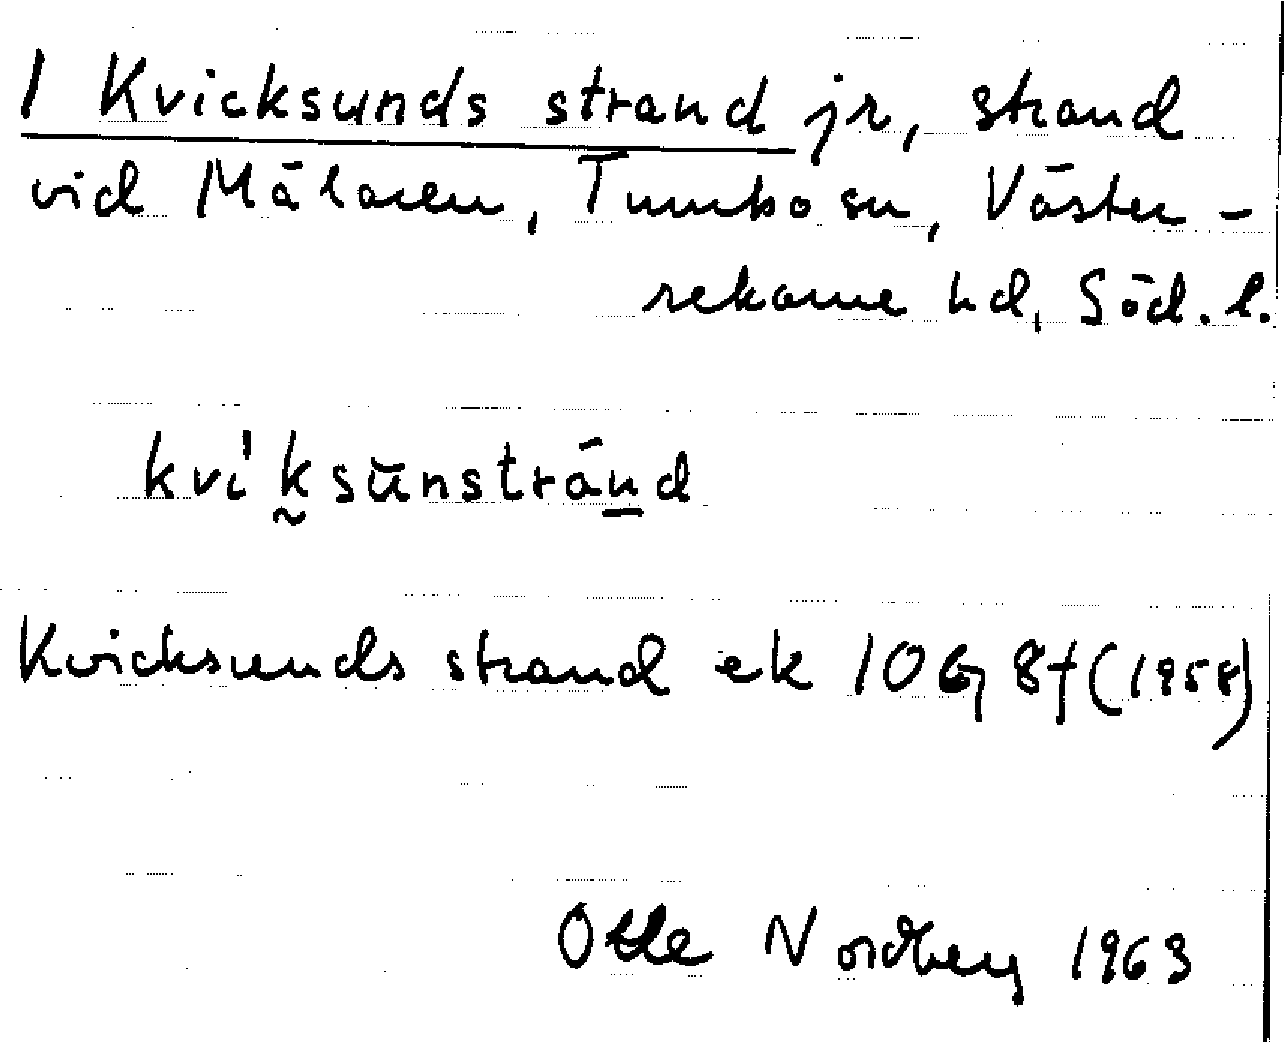 / Kvicksunds strand jr, strand
vid Mälaren, Tumbo sn, Väster-
rekarne hd, Söd. l.
kvi'k̰sūnstrā́n̲d
Kvicksunds strand ek 10G 8f (1958)
Otte Nordberg 1963